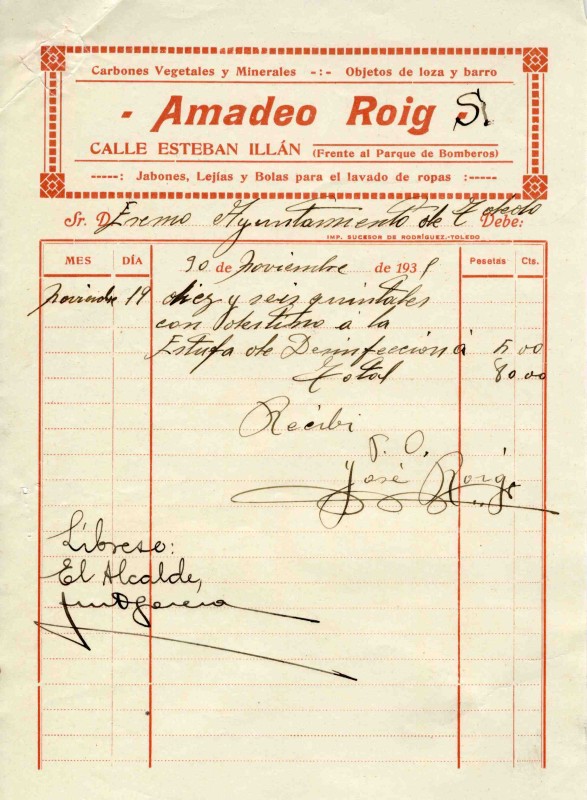 Carbones Vegetales y Minerales -:- Objetos de loza y barro
- Amadeo Roig -
CALLE ESTEBAN ILLÁN (Frente al Parque de Bomberos)
-----: Jabones, Lejías y Bolas para el lavado de ropas :-----
Sr. D. Exmo Ayuntamiento de Toledo Debe:
IMP. SUCESOR DE RODRÍGUEZ.-TOLEDO
MES DÍA 30 de Noviembre de 193 Pesetas Cts.
Noviembre 19 diez y seis quintales
con destino á la
Estufa de Desinfección á 5,00
Total 80,00
Recibi
P. O.
José Roig
Librese:
El Alcalde,